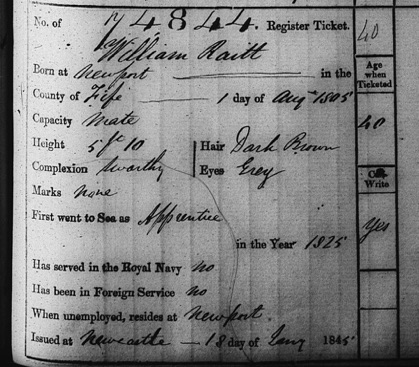 No. of 174844. Register Ticket. 40
William Raitt
Born at Newport in the Age when Ticketed
County of Fife 1 day of Augt 1805
Capacity Mate 40
Height 5 ft 10 Hair Dark Brown
Complexion Swarthy Eyes Grey Can Write
Marks none
First went to Sea as Apprentice Yes
in the Year 1825
Has served in the Royal Navy no
Has been in Foreign Service no
When unemployed, resides at Newport.
Issued at Newcastle 18 day of Jany 1845